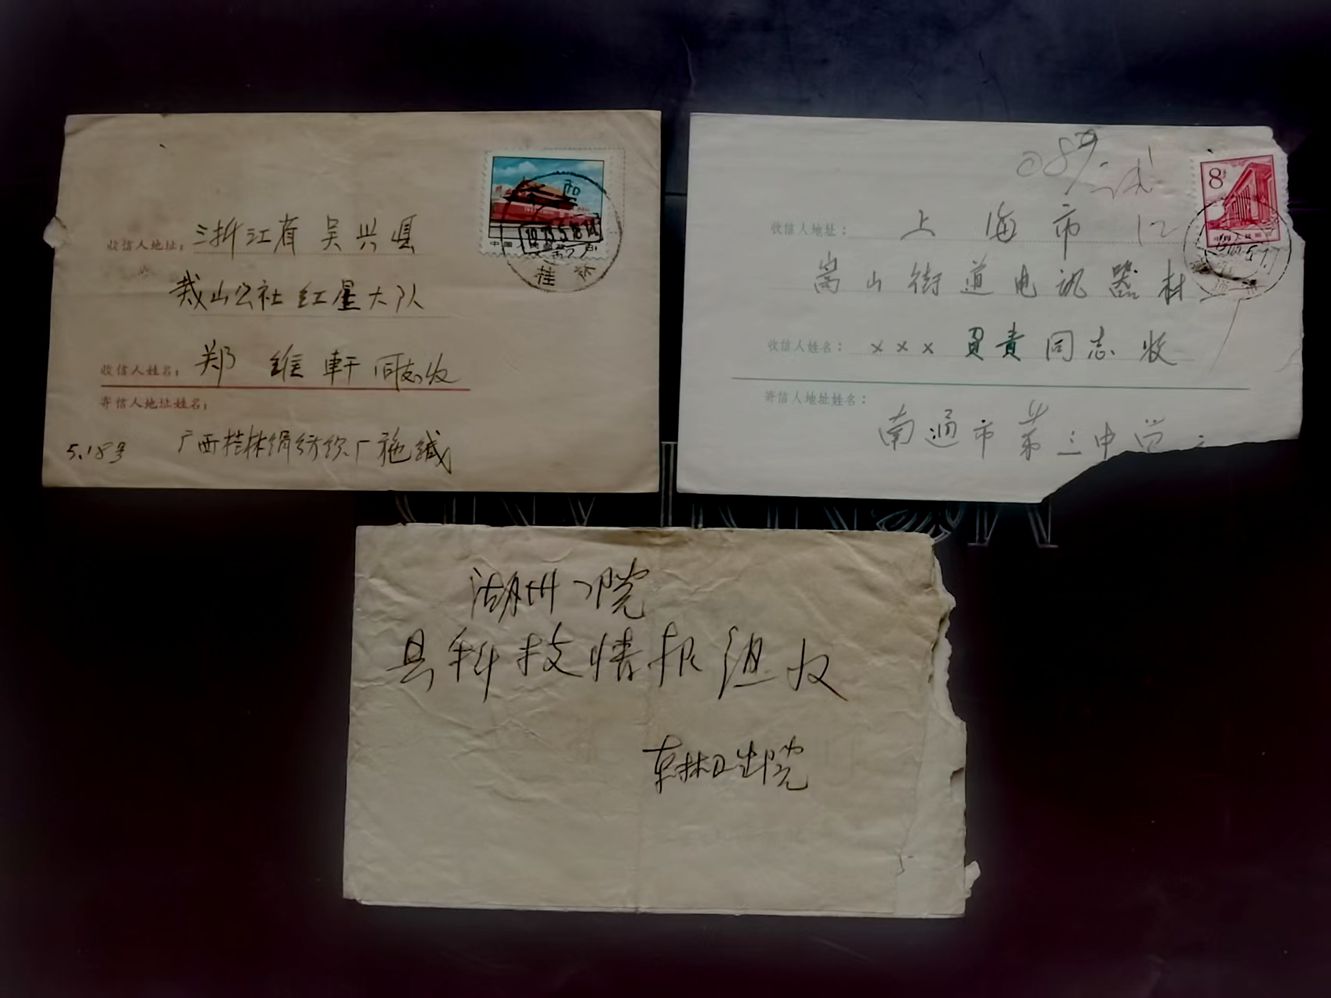 收信人地址：浙江省吴兴县
戴山公社红星大队
收信人姓名：郑维軒同志收
寄信人地址姓名：
5.18号
广西桂林绢纺织厂施缄
桂林
8
收信人地址：上海市
嵩山街道电讯器材
收信人姓名：×××負責同志收
寄信人地址姓名：
南通市第三中学
湖州
县科技情报组收
东林卫生院